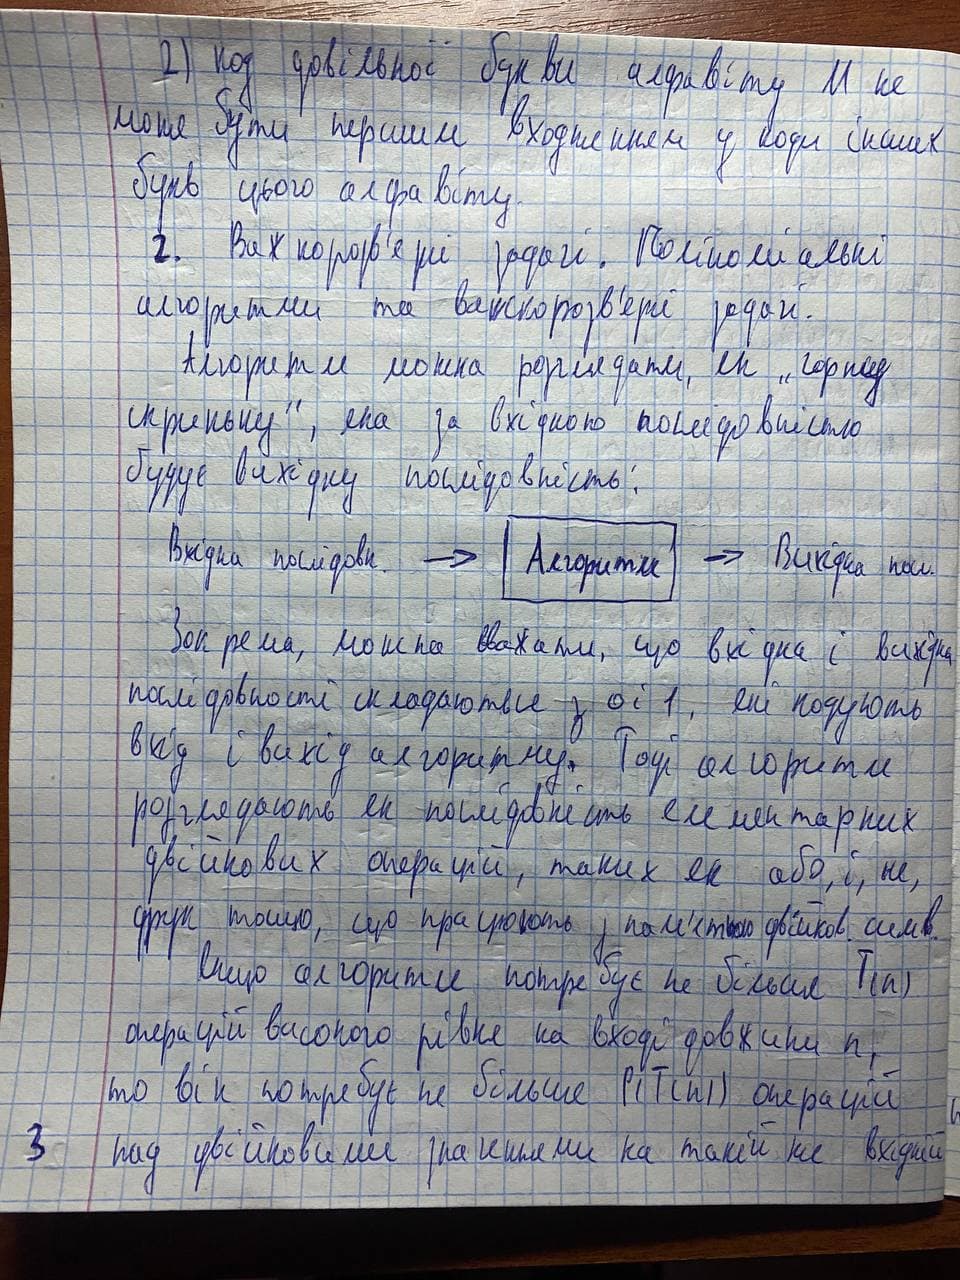 2) код довільної букви алфавіту М не
може бути першим входженням у коди інших
букв цього алфавіту.
2. Важкорозв'язні задачі. Поліноміальні
алгоритми та важкорозв'язні задачі.
Алгоритм можна розглядати, як „чорну
скриньку", яка за вхідною послідовністю
будує вихідну послідовність:
Вхідна послідовн. → Алгоритм → Вихідна посл.
Зокрема, можна вважати, що вхідна і вихідна
послідовності складаються з 0 і 1, які кодують
вхід і вихід алгоритму. Тоді алгоритм
розглядають як послідовність елементарних
двійкових операцій, таких як або, і, не,
друк тощо, що працюють з пам'яттю двійков. симв.
Якщо алгоритм потребує не більше T(n)
операцій високого рівня на вході довжини n,
то він потребує не більше P(T(n)) операцій
3 над двійковими значеннями на такій же вхідній